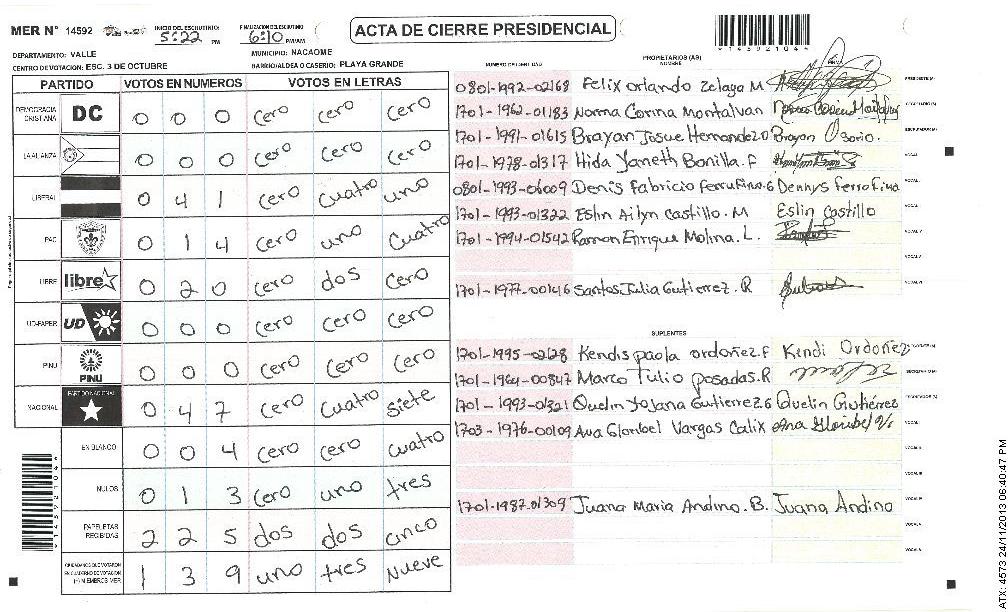 MER N° 14592
INICIO DEL ESCRUTINIO 5:22 PM
FINALIZACION DEL ESCRUTINIO 6:10 PM/AM
ACTA DE CIERRE PRESIDENCIAL
DEPARTAMENTO: VALLE
MUNICIPIO: NACAOME
CENTRO DE VOTACION: ESC. 3 DE OCTUBRE
BARRIO/ALDEA O CASERIO: PLAYA GRANDE
PARTIDO VOTOS EN NUMEROS VOTOS EN LETRAS
DEMOCRACIA CRISTIANA DC 0 0 0 Cero Cero Cero
LA ALIANZA 0 0 0 Cero Cero Cero
LIBERAL 0 4 1 Cero Cuatro uno
PAC 0 1 4 Cero uno Cuatro
LIBRE libre 0 2 0 Cero dos Cero
UD-FAPER UD 0 0 0 Cero Cero Cero
PINU PINU 0 0 0 Cero Cero Cero
NACIONAL PARTIDO NACIONAL 0 4 7 Cero Cuatro siete
EN BLANCO 0 0 4 Cero Cero Cuatro
NULOS 0 1 3 Cero uno tres
PAPELETAS RECIBIDAS 2 2 5 dos dos cinco
CIUDADANOS QUE VOTARON EN CUADERNO DE VOTACION (+) MIEMBROS MER 1 3 9 uno tres Nueve
NUMERO DE IDENTIDAD PROPIETARIOS (AS) NOMBRE FIRMA
0801-1992-02168 Felix Orlando Zelaya M PRESIDENTE (A)
1701-1962-01183 Norma Corina Montalvan SECRETARIO (A)
1701-1991-01615 Brayan Josue Hernandez O Brayan Osorio. ESCRUTADOR (A)
1701-1978-01317 Hida Yaneth Bonilla. F VOCAL I
0801-1993-06009 Denis Fabricio Ferrufino. G Dennys Ferrofino
1701-1993-01322 Eslin Ailyn Castillo. M Eslin Castillo
1701-1994-01542 Ramon Enrique Molina. L.
1701-1977-00146 Santos Julia Gutierrez. R
SUPLENTES
1701-1995-02128 Kendis paola ordoñez. F Kendi Ordoñez
1701-1964-00847 Marco Tulio posadas. R SECRETARIO (A)
1701-1993-01321 Quelin Yojana Gutierrez G Quelin Gutiérrez ESCRUTADOR (A)
1703-1976-00109 Ana Gloribel Vargas Calix Ana Gloribel
1701-1987-01309 Juana Maria Andino. B. Juana Andino
ATX: 4573 24/11/2013 06:40:47 PM